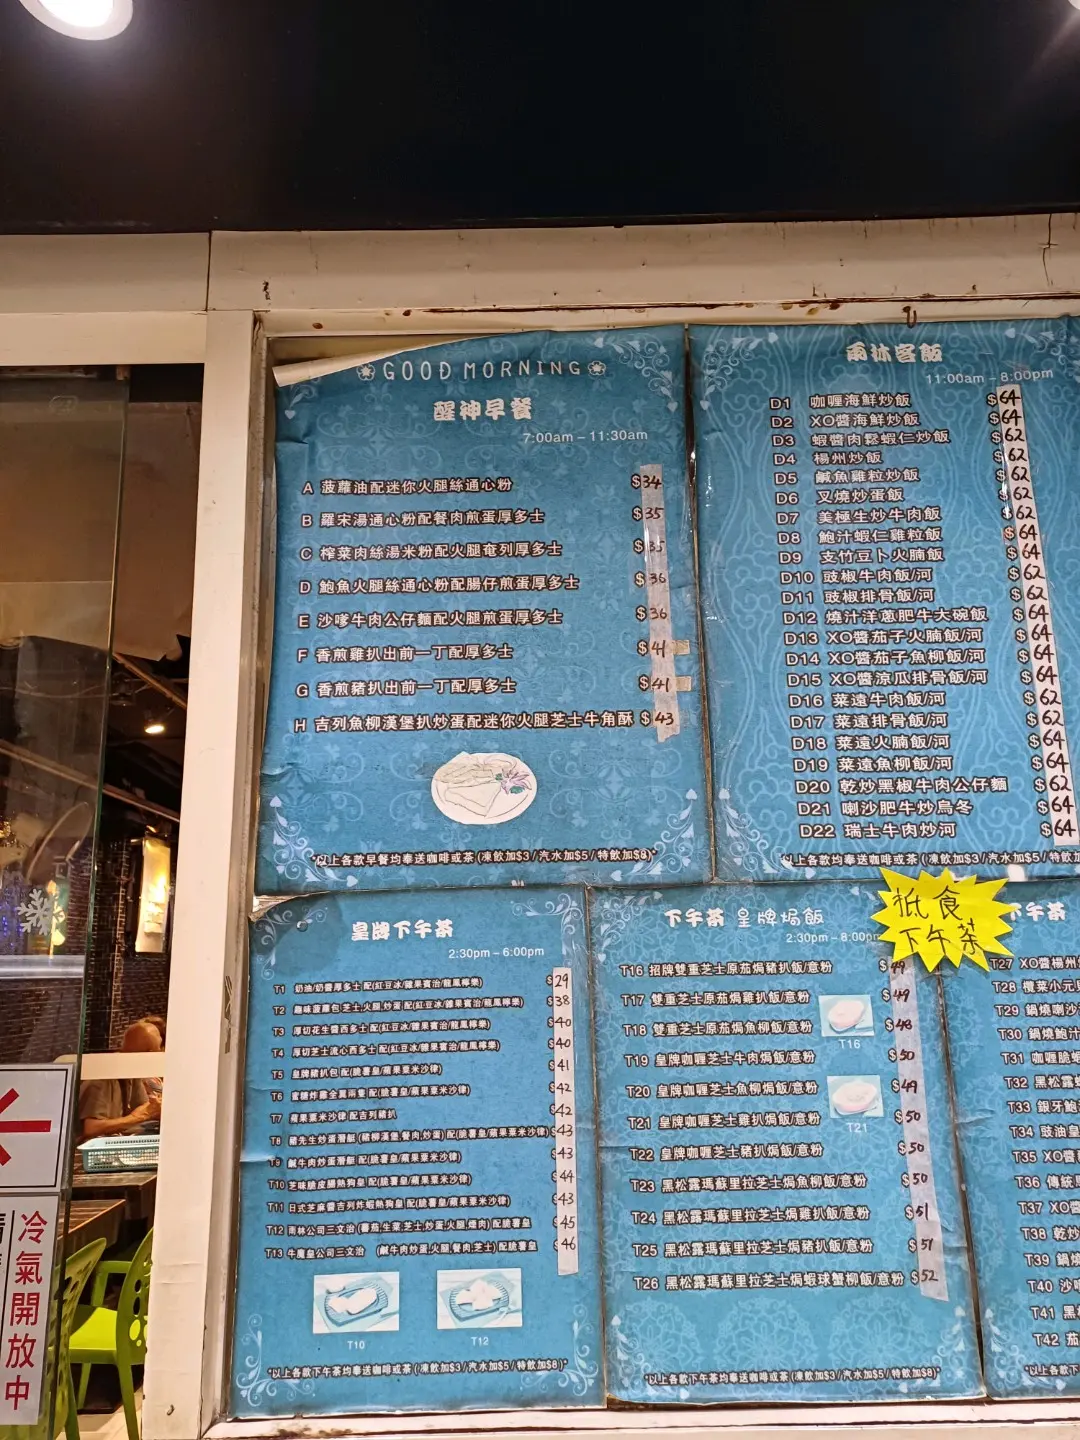 GOOD MORNING
醒神早餐
7:00am – 11:30am
A 菠蘿油配迷你火腿絲通心粉 $34
B 羅宋湯通心粉配餐肉煎蛋厚多士 $35
C 榨菜肉絲湯米粉配火腿奄列厚多士 $35
D 鮑魚火腿絲通心粉配腸仔煎蛋厚多士 $36
E 沙嗲牛肉公仔麵配火腿煎蛋厚多士 $36
F 香煎雞扒出前一丁配厚多士 $41
G 香煎豬扒出前一丁配厚多士 $41
H 吉列魚柳漢堡扒炒蛋配迷你火腿芝士牛角酥 $43
*以上各款早餐均奉送咖啡或茶 (凍飲加$3 / 汽水加$5 / 特飲加$8)*
雨沐客飯
11:00am – 8:00pm
D1 咖喱海鮮炒飯 $64
D2 XO醬海鮮炒飯 $64
D3 蝦醬肉鬆蝦仁炒飯 $62
D4 楊州炒飯 $62
D5 鹹魚雞粒炒飯 $62
D6 叉燒炒蛋飯 $62
D7 美極生炒牛肉飯 $62
D8 鮑汁蝦仁雞粒飯 $64
D9 支竹豆卜火腩飯 $64
D10 豉椒牛肉飯/河 $62
D11 豉椒排骨飯/河 $62
D12 燒汁洋蔥肥牛大碗飯 $64
D13 XO醬茄子火腩飯/河 $64
D14 XO醬茄子魚柳飯/河 $64
D15 XO醬涼瓜排骨飯/河 $64
D16 菜遠牛肉飯/河 $62
D17 菜遠排骨飯/河 $62
D18 菜遠火腩飯/河 $64
D19 菜遠魚柳飯/河 $64
D20 乾炒黑椒牛肉公仔麵 $62
D21 喇沙肥牛炒烏冬 $64
D22 瑞士牛肉炒河 $64
*以上各款均奉送咖啡或茶 (凍飲加$3 / 汽水加$5 / 特飲加
皇牌下午茶
2:30pm – 6:00pm
T1 奶油/奶醬厚多士 配(紅豆冰/雜果賓治/龍鳳檸樂) $29
T2 趣味菠蘿包 芝士火腿,炒蛋 配(紅豆冰/雜果賓治/龍鳳檸樂) $38
T3 厚切花生醬西多士 配(紅豆冰/雜果賓治/龍鳳檸樂) $40
T4 厚切芝士流心西多士 配(紅豆冰/雜果賓治/龍鳳檸樂) $40
T5 皇牌豬扒包 配(脆薯皇/蘋果粟米沙律) $41
T6 蜜糖炸雞全翼兩隻 配(脆薯皇/蘋果粟米沙律) $42
T7 蘋果粟米沙律 配吉列豬扒 $42
T8 豬先生炒蛋潛艇 (豬柳漢堡,餐肉,炒蛋) 配(脆薯皇/蘋果粟米沙律) $43
T9 鹹牛肉炒蛋潛艇 配(脆薯皇/蘋果粟米沙律) $43
T10 芝味脆皮腸熱狗皇 配(脆薯皇/蘋果粟米沙律) $44
T11 日式芝麻醬吉列炸蝦熱狗皇 配(脆薯皇/蘋果粟米沙律) $43
T12 雨林公司三文治 (蕃茄,生菜,芝士,炒蛋,火腿,燻肉) 配脆薯皇 $45
T13 牛魔皇公司三文治 (鹹牛肉炒蛋,火腿,餐肉,芝士) 配脆薯皇 $46
T10
T12
*以上各款下午茶均奉送咖啡或茶 (凍飲加$3 / 汽水加$5 / 特飲加$8)*
下午茶 皇牌焗飯
2:30pm – 8:00pm
T16 招牌雙重芝士原茄焗豬扒飯/意粉 $49
T17 雙重芝士原茄焗雞扒飯/意粉 $49
T18 雙重芝士原茄焗魚柳飯/意粉 $48
T16
T19 皇牌咖喱芝士牛肉焗飯/意粉 $50
T20 皇牌咖喱芝士魚柳焗飯/意粉 $49
T21 皇牌咖喱芝士雞扒焗飯/意粉 $50
T21
T22 皇牌咖喱芝士豬扒焗飯/意粉 $50
T23 黑松露瑪蘇里拉芝士焗魚柳飯/意粉 $50
T24 黑松露瑪蘇里拉芝士焗雞扒飯/意粉 $51
T25 黑松露瑪蘇里拉芝士焗豬扒飯/意粉 $51
T26 黑松露瑪蘇里拉芝士焗蝦球蟹柳飯/意粉 $52
*以上各款下午茶均奉送咖啡或茶 (凍飲加$3 / 汽水加$5 / 特飲加$8)*
抵食
下午茶
下午茶
T27 XO醬楊州
T28 欖菜小元
T29 鍋燒喇沙
T30 鍋燒鮑汁
T31 咖喱脆蝦
T32 黑松露
T33 銀牙鮑
T34 豉油皇
T35 XO醬
T36 傳統
T37 XO
T38 乾炒
T39 鍋燒
T40 沙
T41 黑
T42 茄
*以上各款下
冷氣開放中